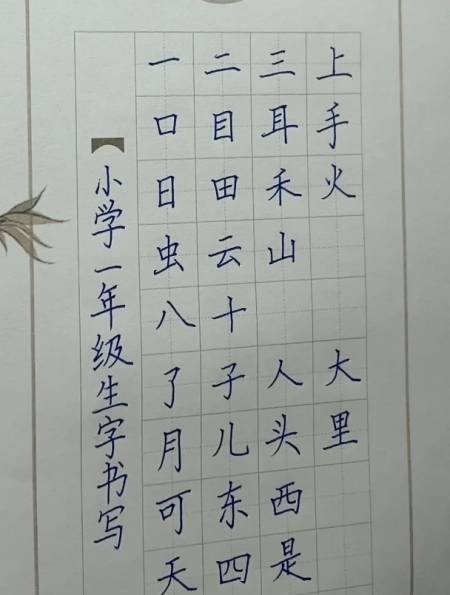 小学一年级生字书写
一二三上
口目耳手
日田禾火
虫云山
八十
了子人大
月儿头里
可东西
天四是